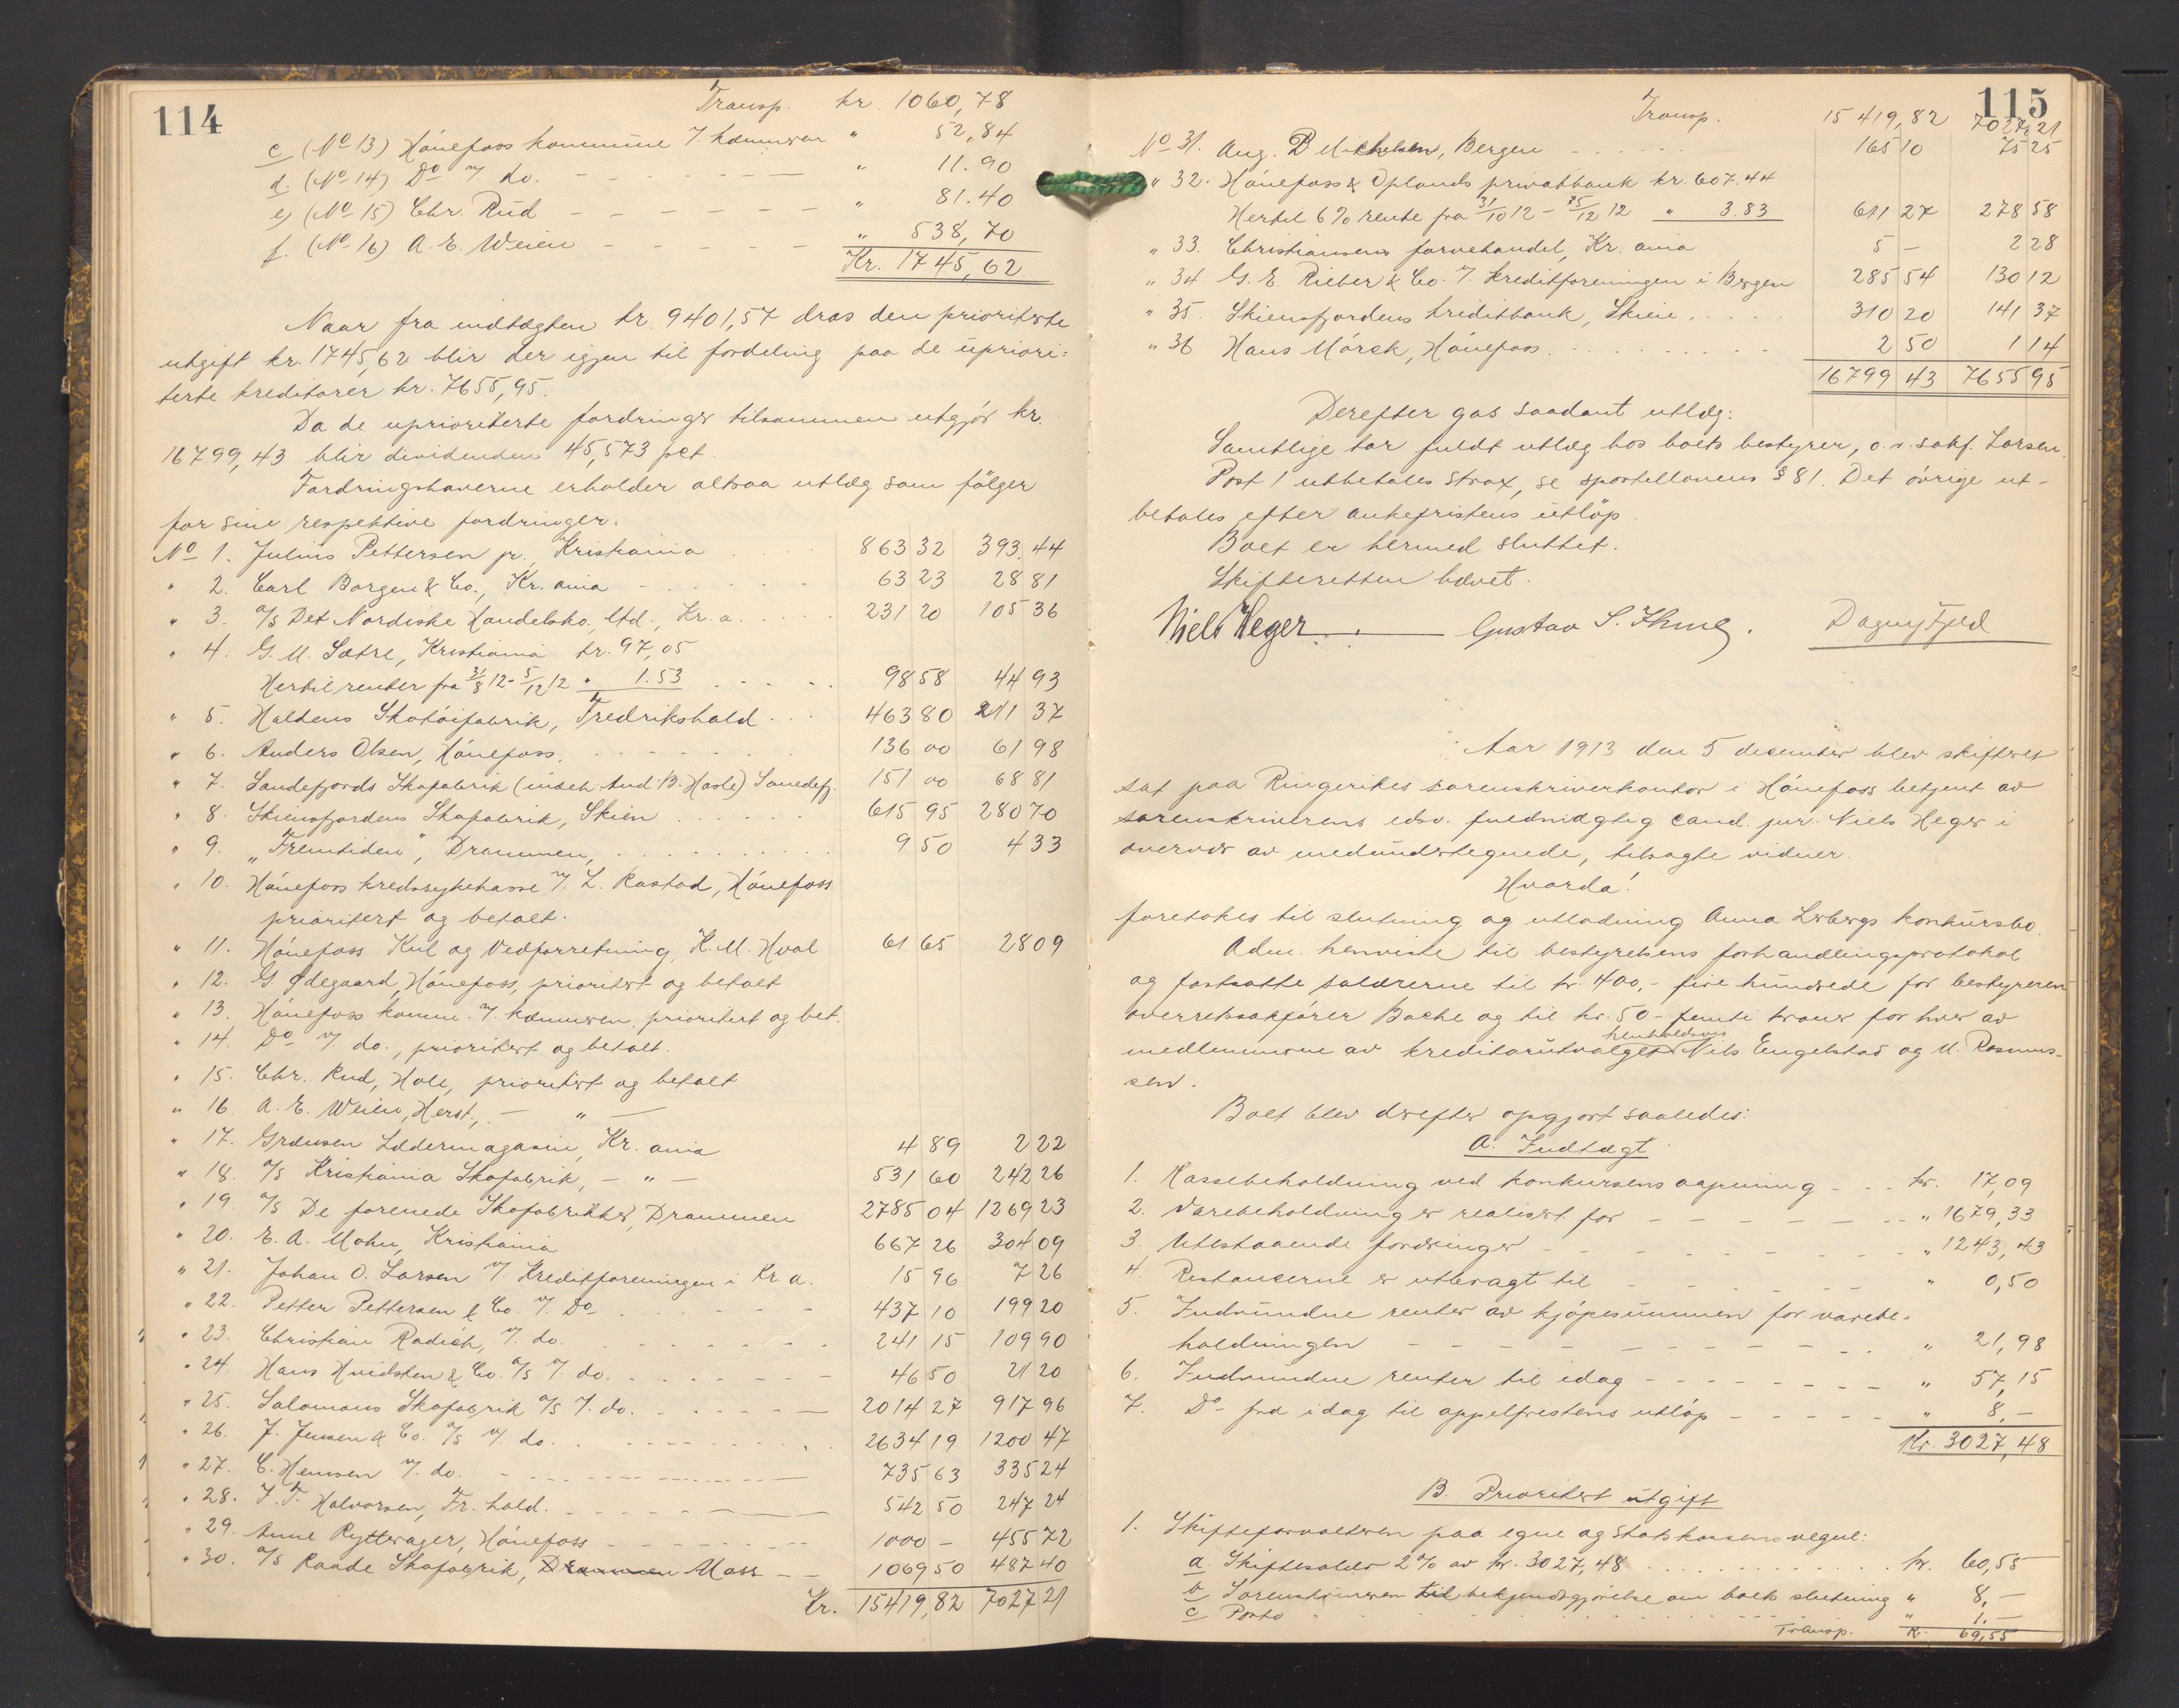 114
Transp. kr. 1060,78
c (No 13) Hönefoss kommune v. kæmneren " 52,84
d. (No 14) Do v/ do. - - - - - " 11.90
e) (No 15) Chr. Rud - - - - - " 81.40
f. (No 16) A. E. Weien - - - - - " 538,70
Kr. 1745,62
Naar fra indtægten kr. 9401,57 dras den prioriterte
utgift kr. 1745,62 blir der igjen til fordeling paa de upriori-
terte kreditorer kr. 7655,95.
Da de uprioriterte fordringer tilsammen utgjör kr.
16799,43 blir dividenden 45,573 pct.
Fordringshaverne erholder altsaa utlæg som fölger
for sine respektive fordringer.
No 1. Julius Pettersen jr., Kristiania 863 32 393.44
" 2. Carl Borgen & Co., Kr.ania 63 23 28 81
" 3. A/S Det Nordiske Handelsko., ltd., Kr.a. 231 20 105 36
" 4. G. M. Sætre, Kristiania kr. 97,05
Hertil renter fra 31/8 12 - 5/12 12 " 1.53 98 58 44 93
" 5. Haldens Skotöifabrik, Fredrikshald 463 80 211 37
" 6. Anders Olsen, Hönefoss. 136 00 61 98
" 7. Sandefjords Skofabrik (indeh. And. B. Hasle) Sandefj. 151 00 68 81
" 8. Skiensfjordens Skofabrik, Skien 615 95 280 70
" 9. "Fremtiden", Drammen, 9 50 4 33
" 10. Hönefoss kredssykekasse v/ L. Rastad, Hönefoss
prioritert og betalt.
" 11. Hönefoss Kul og Vedforretning, K. M. Hval 61 65 28 09
" 12. G. Ødegaard, Hönefoss, prioritert og betalt
" 13. Hönefoss komm. v. kæmneren, prioritert og bet.
" 14. Do v/ do., prioritert og betalt.
" 15. Chr. Rud, Hole, prioritert og betalt
" 16. A. E. Weien, Herst., - " -
" 17. Grænsen Lædermagasin, Kr.ania 4 89 2 22
" 18. A/S Kristiania Skofabrik, - " - 531 60 242 26
" 19. A/S De forenede Skofabrikker, Drammen 2785 04 1269 23
" 20. E. A. Mohn, Kristiania 667 26 304 09
" 21. Johan O. Larsen v/ Kreditforeningen i Kr.a. 15 96 7 26
" 22. Petter Pettersen & Co. v/ Do 437 10 199 20
" 23. Christian Radich, v/ do. 241 15 109 90
" 24. Hans Hvidsten & Co. A/S v/ do. 46 50 21 20
" 25. Salomons Skofabrik A/S v. do. 2014 27 917 96
" 26. J. Jensen & Co. A/S v/ do. 2634 19 1200 47
" 27. C. Hemsen v/ do. 735 63 335 24
" 28. J. T. Halvorsen, Fr.hald. 542 50 247 24
" 29. Anne Rytterager, Hönefoss 1000 - 455 72
" 30. A/S Raade Skofabrik, Drammen Moss 1069 50 487 40
Kr. 15419,82 7027 21
115
Transp. 15419,82 7027,21
No 31. Aug. B Michelsen, Bergen 165 10 75 25
" 32. Hönefoss & Oplands privatbank kr. 607.44
Hertil 6% rente fra 31/10 12 - 5/12 12 " 3.83 611 27 278 58
" 33. Christiansens farvehandel, Kr.ania 5 - 2 28
" 34 G. E. Rieber & Co. v. Kreditforeningen i Bergen 285 54 130 12
" 35. Skiensfjordens kreditbank, Skien 310 20 141 37
" 36 Hans Mörck, Hönefoss. 2 50 1 14
16799 43 7655 95
Derefter gas saadant utlæg:
Samtlige tar fuldt utlæg hos boets bestyrer, o.r.sakf. Larsen.
Post 1 utbetales strax, se sportellovens § 81. Det övrige ut-
betales efter ankefristens utlöp.
Boet er hermed sluttet.
Skifteretten hævet.
Niels Heger. Gustav S. Dagny Fjeld
Aar 1913 den 5 desember blev skifteret
sat paa Ringerikes sorenskriverkontor i Hönefoss betjent av
sorenskriverens edsv. fuldmægtig cand. jur. Niels Heger i
overvær av medundertegnede, tilsagte vidner.
Hvorda!
foretokes til slutning og utlodning Anna Lerbergs konkursbo.
Adm. henviste til bestyrelsens forhandlingsprotokol
og fastsatte salærerne til kr. 400,- fire hundrede for bestyreren
overretssakförer Bache og til kr. 50 - femti kroner for hver av
henholdsvis
medlemmerne av kreditorutvalget Nils Engelstad og M. Rasmus-
sen.
Boet blev derefter opgjort saaledes:
A. Indtægt
1. Kassebeholdning ved konkursens aapning - - kr. 17,09
2. Varebeholdning er realisert for - - - - - " 1679,33
3. Utestaaende fordringer - - - - - " 1243,43
4. Restancerne er utbragt til - - - - " 0,50
5. Indvundne renter av kjöpesummen for varebe-
holdningen - - - - - " 21,98
6. Indvundne renter til idag - - - - - " 57,15
7. Do fra idag til appelfristens utlöp - - - - " 8,-
Kr. 3027,48
B. Prioritert utgift
1. Skifteforvalteren paa egne og Statskassens vegne:
a. Skiftesalær 2% av kr. 3027,48 kr. 60,55
b Sorenskriveren til bekjendtgjörelse om boets slutning " 8,-
c Porto " 1.-
Transp. K. 69,55